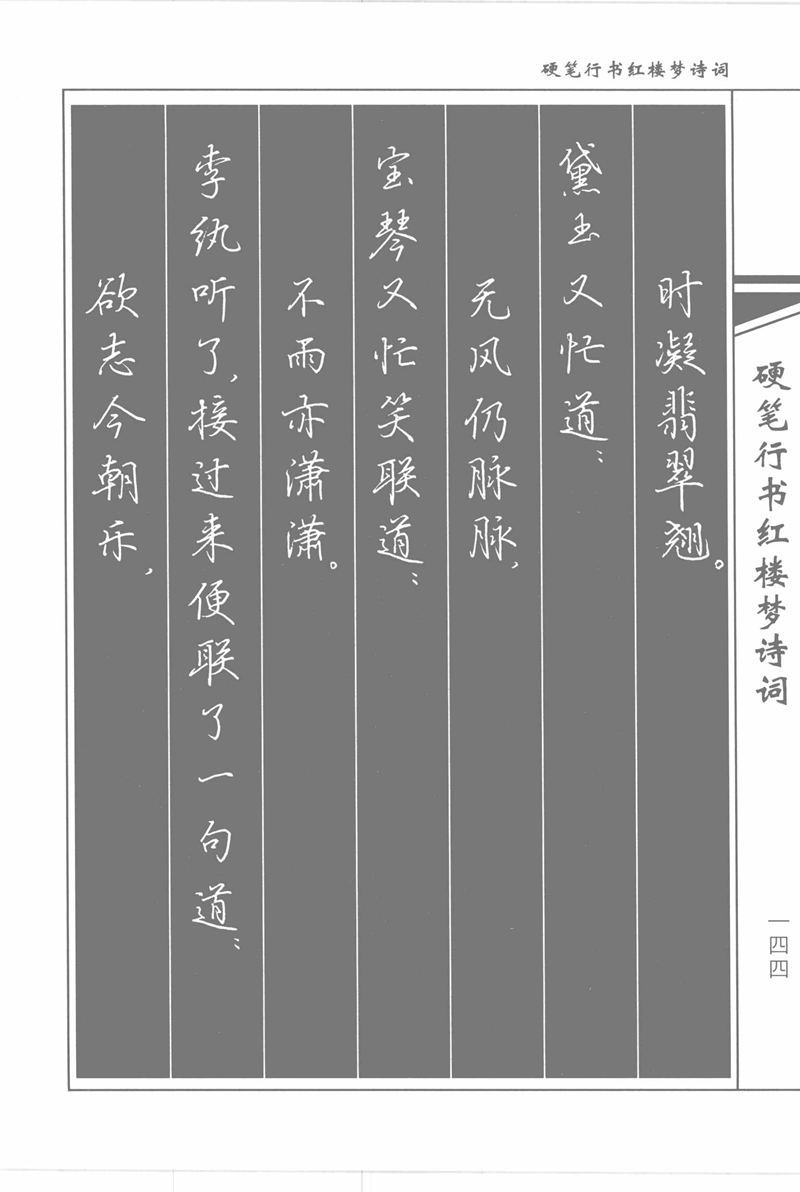 硬笔行书红楼梦诗词
时凝翡翠翘。
黛玉又忙道：
无风仍脉脉，
宝琴又忙笑联道：
不雨亦潇潇。
李纨听了，接过来便联了一句道：
欲志今朝乐，
硬笔行书红楼梦诗词
一四四